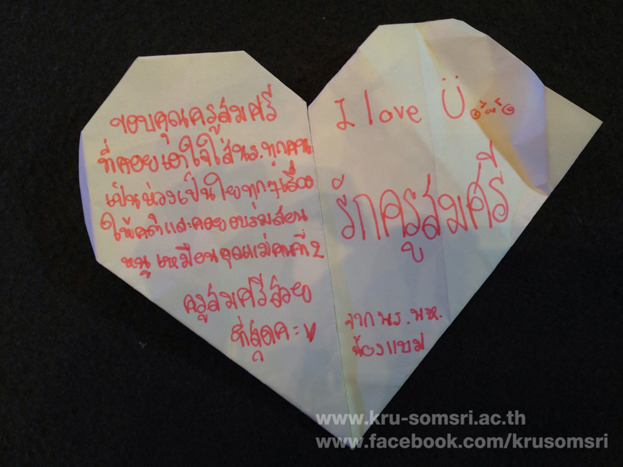 ขอบคุณครูสมศรี
ที่คอยเอาใจใส่นร.ทุกคน
เป็นห่วงเป็นใยทุกๆเรื่อง
ให้คติและคอยอบรมสอน
หนูเหมือนคุณแม่คนที่2
ครูสมศรีสวย
ที่สุดค่ะ
I love Ü
รักครูสมศรี
จาก นร. พห.
น้องแบม
www.kru-somsri.ac.th
www.facebook.com/krusomsri